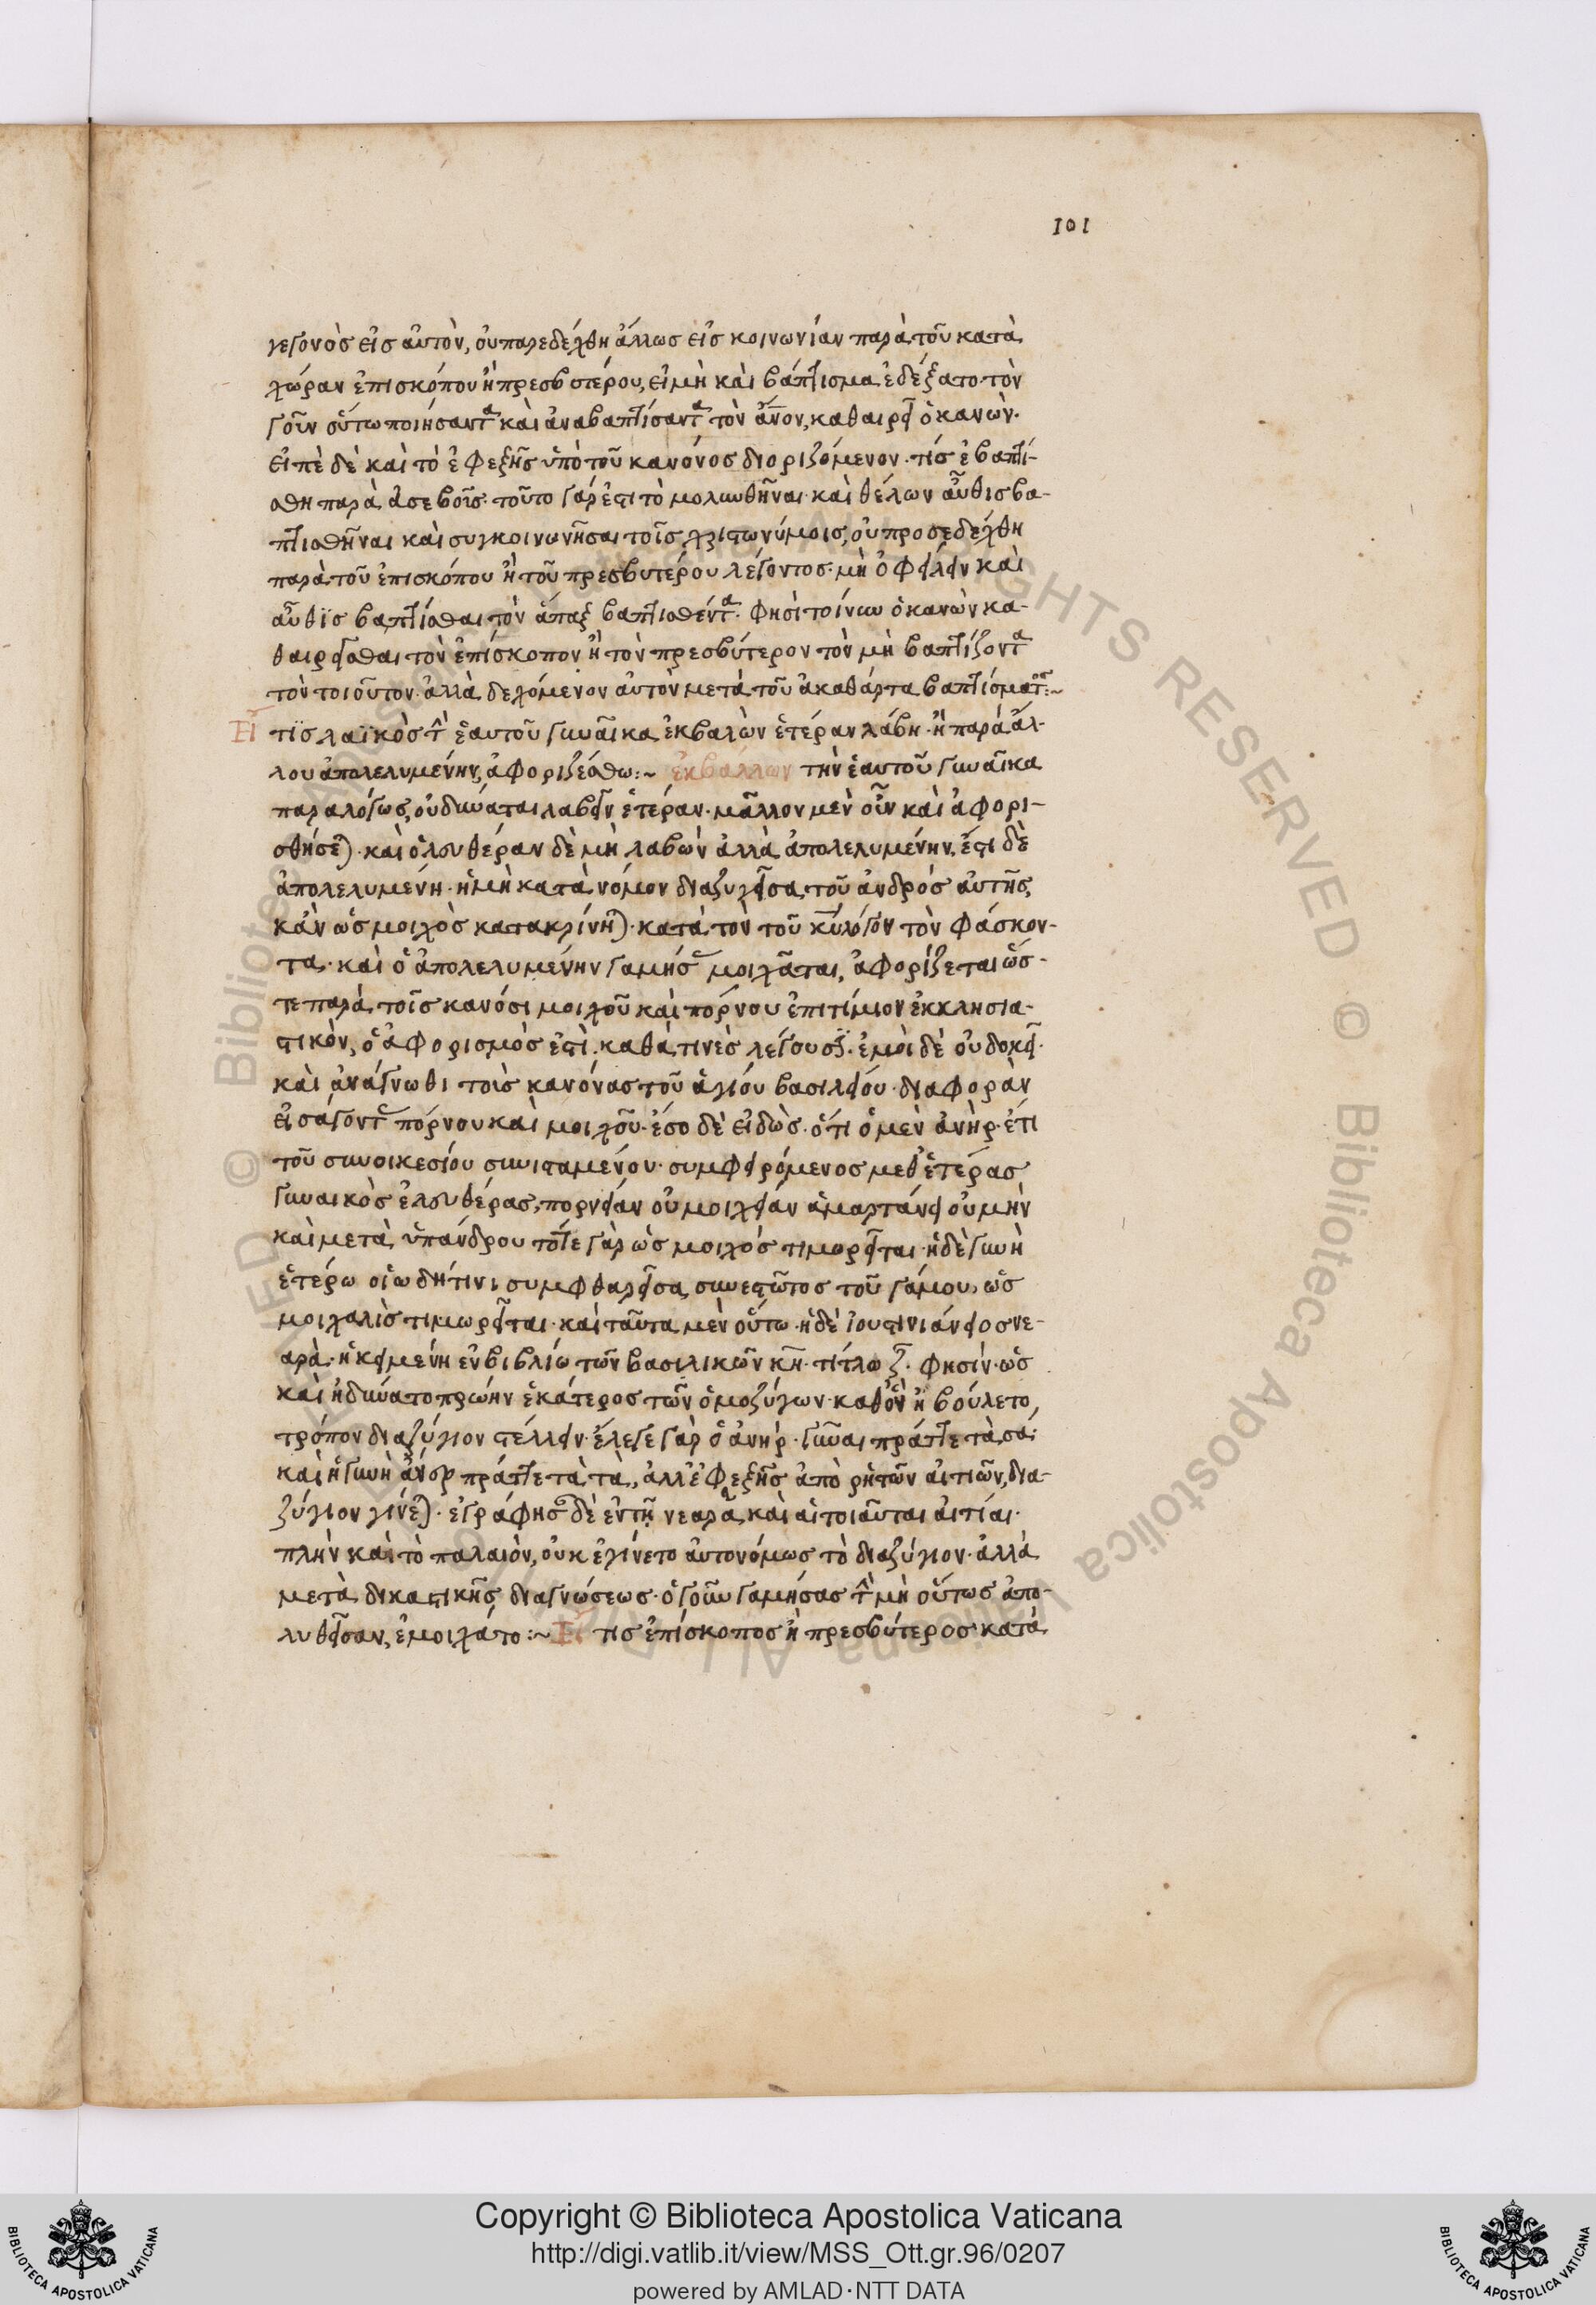 101
γεγονὸς εἰς αὐτὸν, οὐ παρεδέχθη ἄλλως εἰς κοινωνίαν παρὰ τοῦ κατὰ
χώραν ἐπισκόπου ἢ πρεσβυτέρου, εἰ μὴ καὶ βάπτισμα ἐδέξατο· τὸν
γοῦν οὕτω ποιήσαντα καὶ ἀναβαπτίσαντα τὸν ἄνον, καθαιρεῖ ὁ κανών·
εἰπὲ δὲ καὶ τὸ ἐφεξῆς ὑπὸ τοῦ κανόνος διοριζόμενον· τίς ἐβαπτί-
σθη παρὰ ἀσεβοῖς· τοῦτο γάρ ἐστι τὸ μολυνθῆναι· καὶ θέλων αὖθις βα-
πτισθῆναι καὶ συγκοινωνῆσαι τοῖς χριστωνύμοις, οὐ προσεδέχθη
παρὰ τοῦ ἐπισκόπου ἢ τοῦ πρεσβυτέρου λέγοντος· μὴ ὀφείλειν καὶ
αὖθις βαπτίσθαι τὸν ἅπαξ βαπτισθέντα· φησὶ τοίνυν ὁ κανὼν κα-
θαιρεῖσθαι τὸν ἐπίσκοπον ἢ τὸν πρεσβύτερον τὸν μὴ βαπτίζοντα
τὸν τοιοῦτον· ἀλλὰ δεχόμενον αὐτὸν μετὰ τοῦ ἀκαθάρτα βαπτίσματος:~
Εἴ τις λαϊκὸς τὴν ἑαυτοῦ γυναῖκα ἐκβαλὼν ἑτέραν λάβη· ἢ παρὰ ἄλ-
λου ἀπολελυμένην, ἀφοριζέσθω:~ ἐκβάλλων τὴν ἑαυτοῦ γυναῖκα
παραλόγως, οὐ δύναται λαβεῖν ἑτέραν· μᾶλλον μὲν οὖν καὶ ἀφορι-
σθήσεται· καὶ ἐλευθέραν δὲ μὴ λαβὼν ἀλλὰ ἀπολελυμένην, ἔστι δὲ
ἀπολελυμένη· ἡ μὴ κατὰ νόμον διαζυγεῖσα τοῦ ἀνδρός αὐτῆς,
κἂν ὡς μοιχὸς κατακρίνηται· κατὰ τὸν τοῦ κυ λόγον τὸν φάσκον-
τα· καὶ ὁ ἀπολελυμένην γαμήσας μοιχᾶται, ἀφορίζεται ὥσ-
τε παρὰ τοῖς κανόσι μοιχοῦ καὶ πόρνου ἐπιτίμιον ἐκκλησια-
στικὸν, ὁ ἀφορισμός ἐστὶ· καθά τινὲς λέγουσι· ἐμοὶ δὲ οὐ δοκεῖ·
καὶ ἀνάγνωθι τοὺς κανόνας τοῦ ἁγίου βασιλείου· διαφορὰν
εἰσάγοντας πόρνου καὶ μοιχοῦ· ἔσο δὲ εἰδὼς· ὅτι ὁ μὲν ἀνὴρ· ἔτι
τοῦ συνοικεσίου συνισταμένου· συμφθειρόμενος μεθ' ἑτέρας
γυναικὸς ἐλευθέρας, πορνείαν οὐ μοιχείαν ἁμαρτάνει οὐ μὴν
καὶ μετὰ ὑπάνδρου τότε γὰρ ὡς μοιχός τιμωρεῖται· ἡ δὲ γυνὴ
ἑτέρω οἱωδήτινι συμφθαρεῖσα, συνεστῶτος τοῦ γάμου, ὡς
μοιχαλὶς τιμωρεῖται· καὶ ταῦτα μὲν οὕτω· ἡ δὲ ἰουστινιάνειος νε-
αρὰ· ἡ κειμένη ἐν βιβλίω τῶν βασιλικῶν κη· τίτλω ζ· φησίν· ὡς
καὶ ἠδύνατο πρώην ἑκάτερος τῶν ὁμοζύγων· καθ' ὃν ἠβούλετο,
τρόπον διαζύγιον στέλλειν· ἔλεγε γὰρ ὁ ἀνήρ· γύναι πράττε τὰ σά·
καὶ ἡ γυνὴ ἄνερ πράττε τὰ τὰ, ἀλλ' ἐφεξῆς ἀπὸ ῥητῶν αἰτιῶν, δια-
ζύγιον γίνεται· ἐγράφησαν δὲ ἐν τῇ νεαρᾶ, καὶ αἱ τοιαῦται αἰτίαι·
πλὴν καὶ τὸ παλαιὸν, οὐκ ἐγίνετο αὐτονόμως τὸ διαζύγιον· ἀλλὰ
μετὰ δικαστικῆς διαγνώσεως· ὁ γοῦν γαμήσας τὴν μὴ οὕτως ἀπο-
λυθεῖσαν, ἐμοιχάτο:~ Εἴ τις ἐπίσκοπος ἢ πρεσβύτερος κατὰ
© Biblioteca Apostolica Vaticana ALL RIGHTS RESERVED © Biblioteca Apostolica Vaticana ALL RIGHTS RESERVED
BIBLIOTECA APOSTOLICA VATICANA
Copyright © Biblioteca Apostolica Vaticana
http://digi.vatlib.it/view/MSS_Ott.gr.96/0207
powered by AMLAD·NTT DATA
BIBLIOTECA APOSTOLICA VATICANA